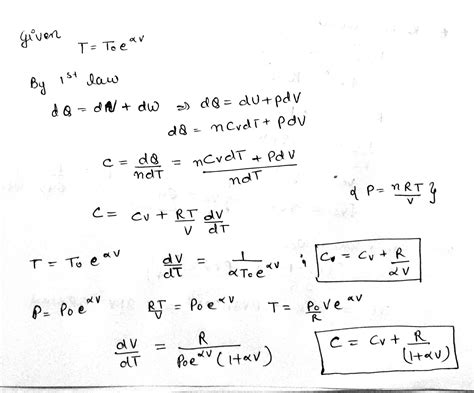 Given T = T₀e^αV
By 1st law
dQ = dU + dW ⇒ dQ = dU + PdV
dQ = nCvdT + PdV
C = dQ/ndT = (nCvdT + PdV)/ndT
C = Cv + RT/V dV/dT { P = nRT/V }
T = T₀ e^αV dV/dT = 1/(αT₀e^αV) ; C = Cv + R/αV
P = P₀e^αV RT/V = P₀e^αV T = P₀/R Ve^αV
dV/dT = R/(P₀e^αV (1+αV)) C = Cv + R/(1+αV)